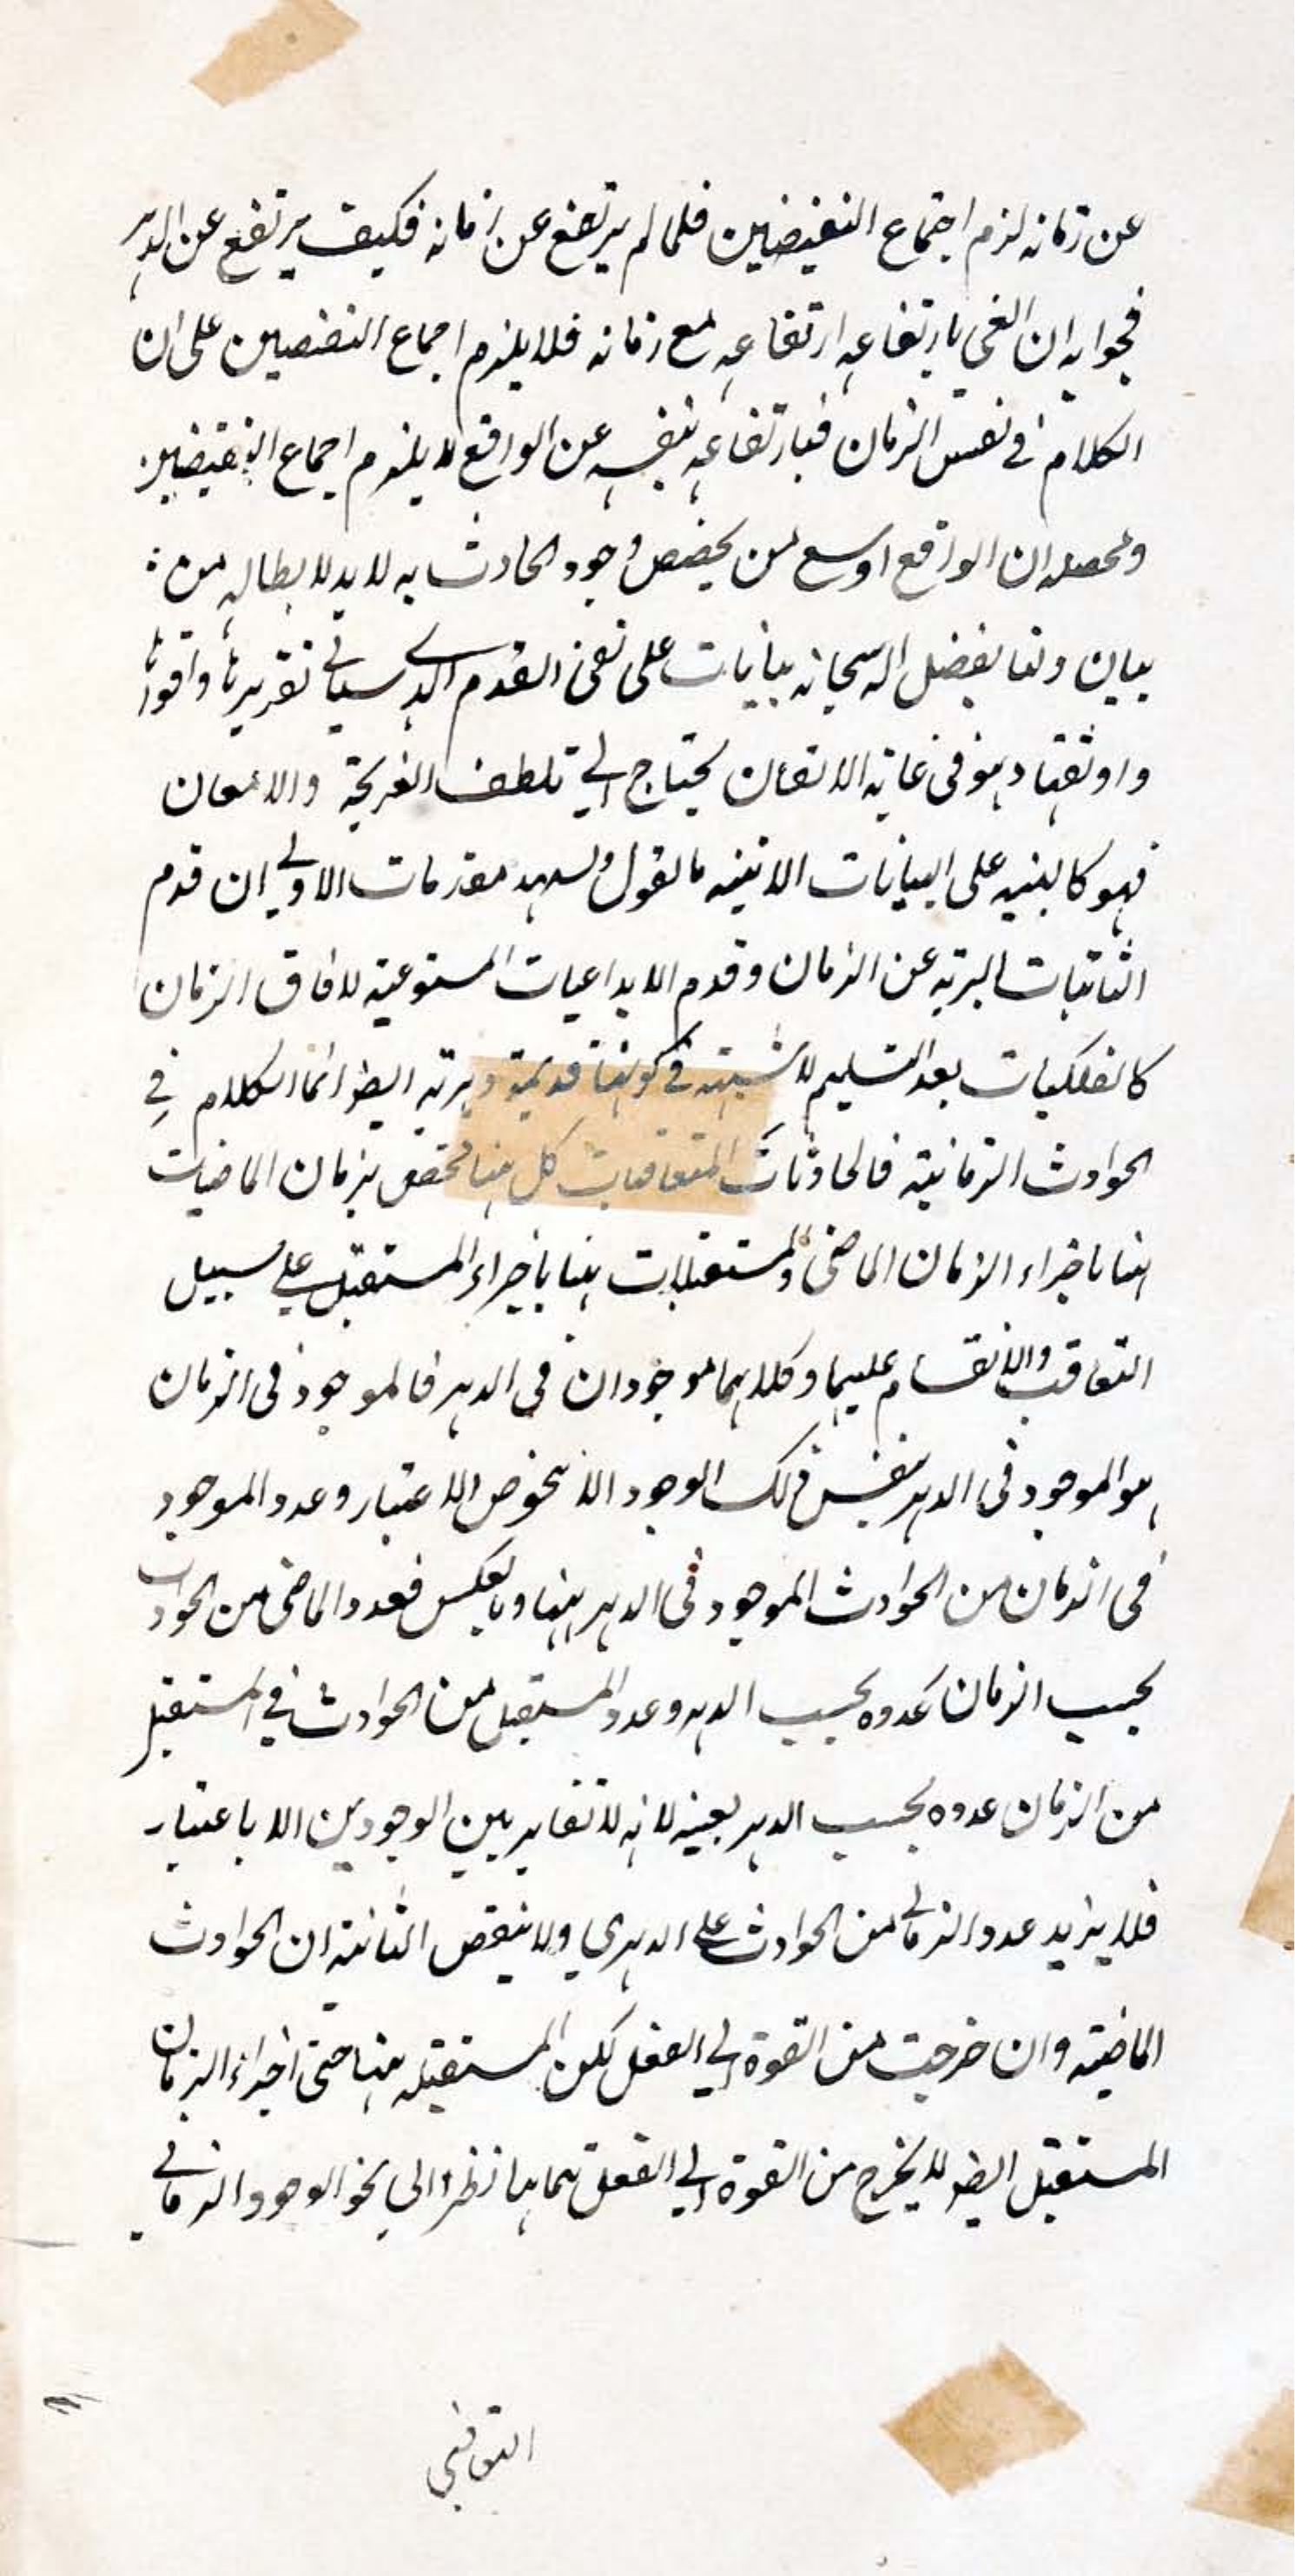 عن زمانه لزم اجتماع النقيضين فلما لم يرتفع عن زمانه فكيف يرتفع عن الدهر
فجوابه ان الغى بارتفاعه ارتفاعه مع زمانه فلا يلزم اجماع النقيضين على ان
الكلام فى نفس الزمان فبارتفاعه بنفسه عن الواقع لا يلزم اجماع النقيضين
ومحصله ان الواقع اوسع من يخصص وجود الحادث به لا بد لابطاله من
بيان ولنا بفضل اله سبحانه بيانات على نفى القدم الدهرى سياتى تقريرها واقواها
واوثقها وهو فى غاية الاتقان يحتاج الى تلطف القريحة والامعان
فهو كالبنيه على البيانات الاتيه ما نقول ولنمهد مقدمات الاولى ان قدم
الثابتات البرية عن الزمان وقدم الابداعيات المستوعية لافاق الزمان
كالفلكيات بعد التسليم لا شبهة فى كونها قديمة دهرية ايضا انما الكلام فى
الحوادث الزمانية فالحادثات المتعاقبات كل منها مختص بزمان الماضيات
منها باجزاء الزمان الماضى والمستقبلات منها باجزاء المستقبل على سبيل
التعاقب والانقسام عليهما وكلاهما موجودان فى الدهر فالموجود فى الزمان
هو الموجود فى الدهر بنفس ذلك الوجود الا بنحو من الاعتبار وعدد الموجود
فى الزمان من الحوادث الموجود فى الدهر منها وبالعكس فعدد الماضى من الحوادث
بحسب الزمان كعدده بحسب الدهر وعدد المستقبل من الحوادث فى المستقبل
من الزمان عدده بحسب الدهر بعينه لانه لا تغاير بين الوجودين الا باعتبار
فلا يزيد عدد الزمانى من الحوادث على الدهري ولا ينقص الثانية ان الحوادث
الماضية وان خرجت من القوة الى الفعل لكن المستقبلة منها حتى اجزاء الزمان
المستقبل ايضا لا يخرج من القوة الى الفعل بتمامها نظرا الى نحو الوجود الزمانى